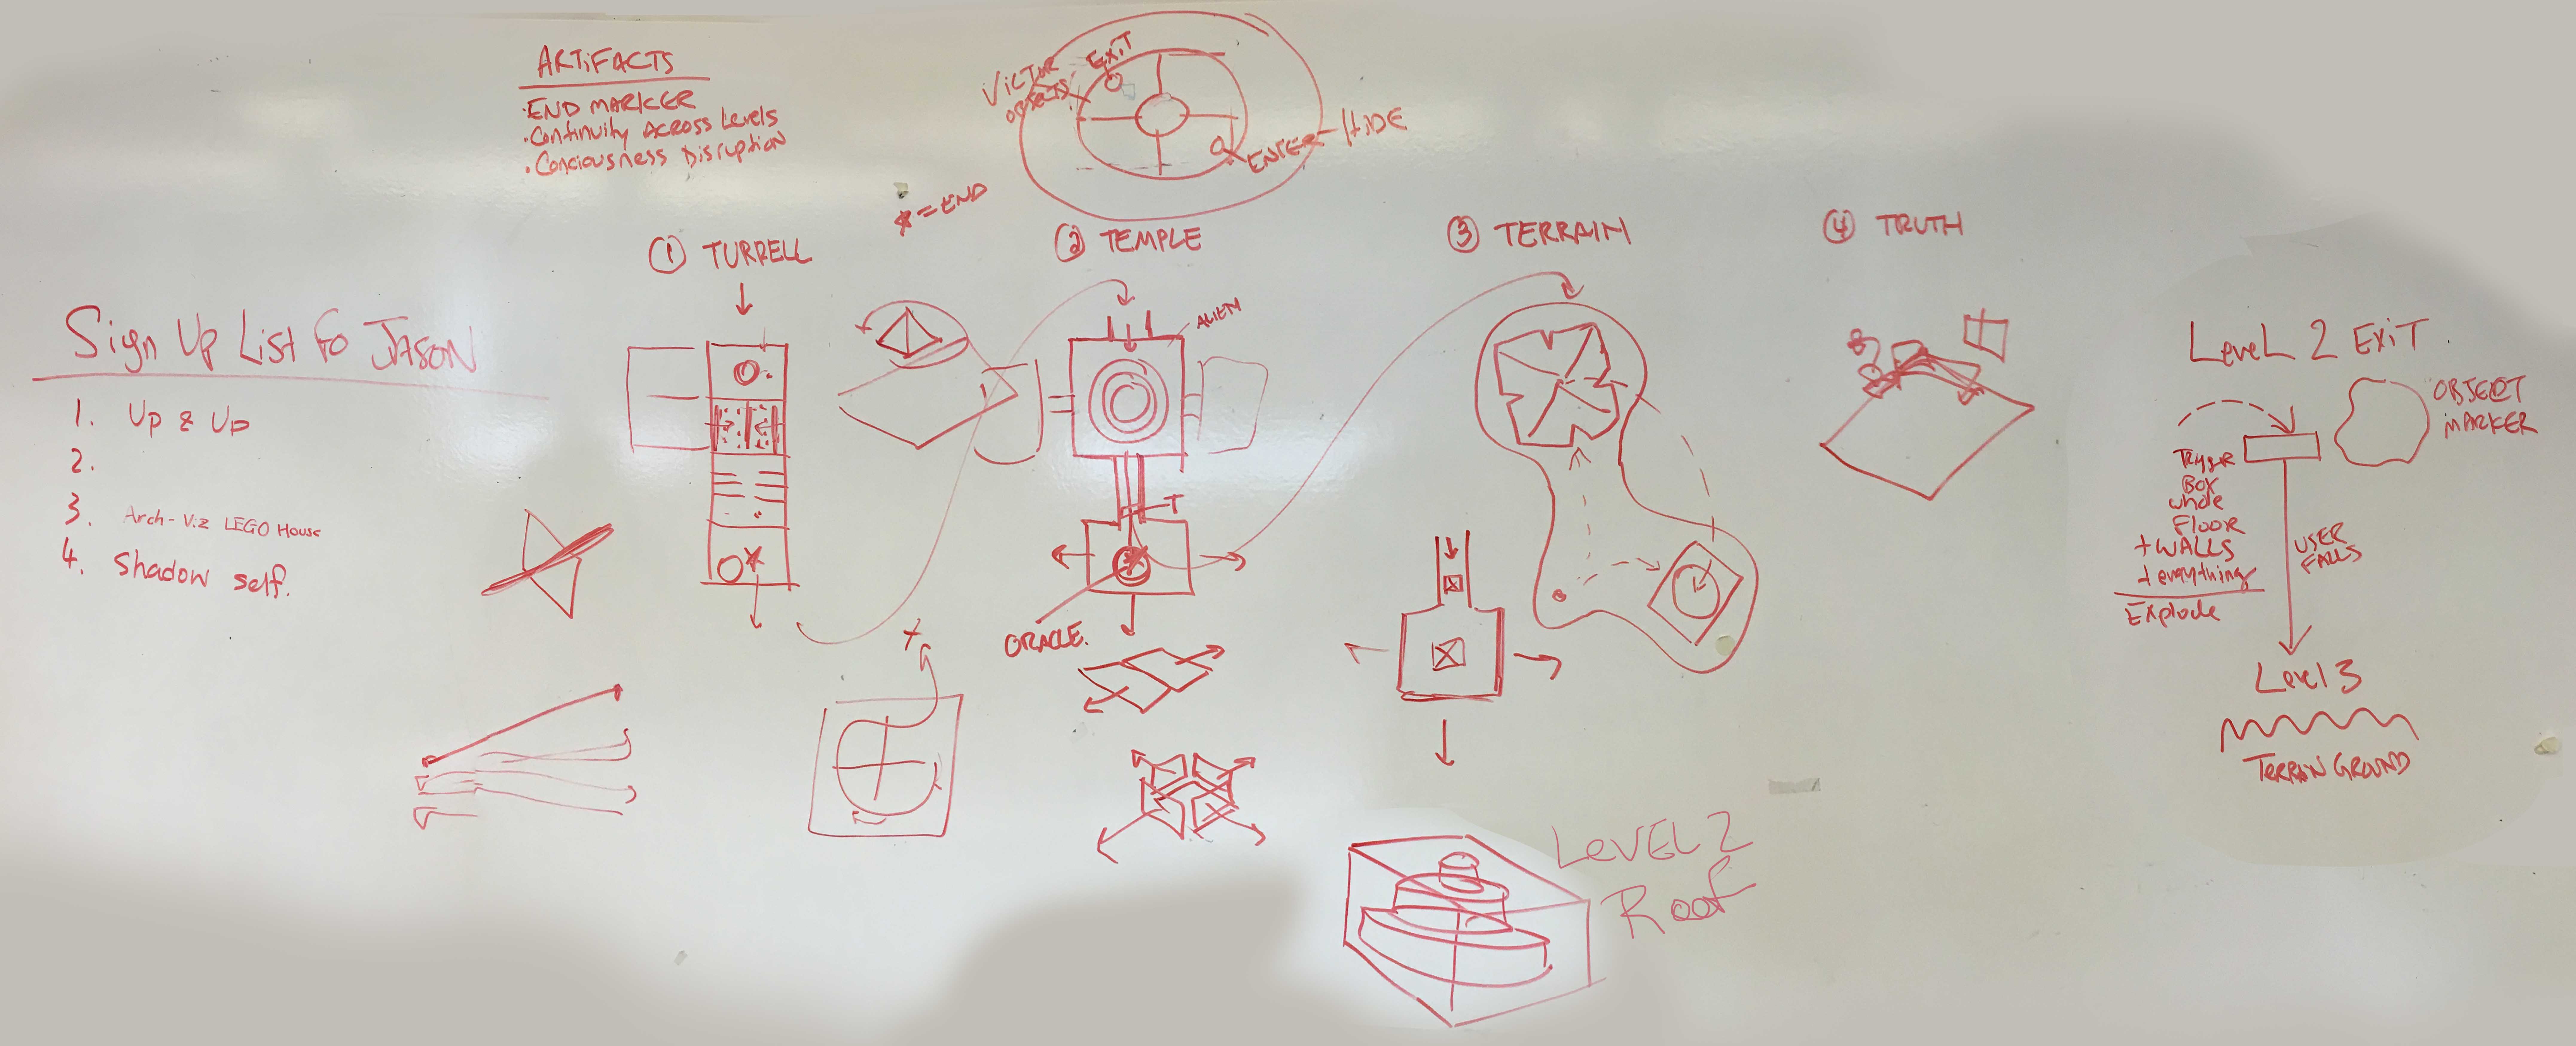 ARTiFACTS
·END MARKER
·Continuity ACROSS Levels
·Conciousness Disruption
ViCTOR
OBJECTS
EXiT
ENTER
HiDE
* = END
① TURRELL
② TEMPLE
③ TERRAIN
④ TRUTH
ALIEN
T
ORACLE.
Sign Up List fo JASON
1. Up & Up
2.
3. Arch-Viz LEGO House
4. Shadow self.
LeveL 2 EXiT
OBJECT
MARKER
Trigger
Box
whole
Floor
+ WALLS
+ everything
Explode
USER
FALLS
Level 3
TERRAIN GROUND
LEVEL 2
Roof